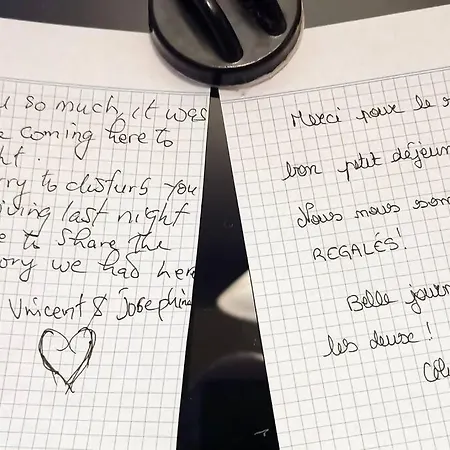 so much, it was
coming here to
ht.
ry to disturb you
iving last night
e to share the
ory we had here
Vincent & Josephine
Merci pour le
bon petit déjeun
Nous nous som
REGALÉS!
Belle journ
les deux!